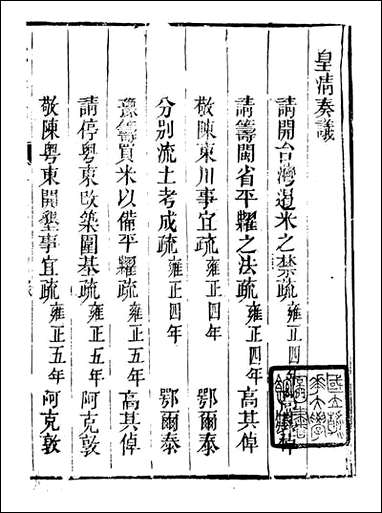 皇清奏議
請開台灣遏米之禁疏雍正四 倬
請籌閩省平糶之法疏雍正四年 高其倬
敬陳東川事宜疏雍正四年 鄂爾泰
分別流土考成疏雍正四年 鄂爾泰
豫籌買米以備平糶疏雍正五年 高其倬
請停粵東改築圍基疏雍正五年 阿克敦
敬陳粵東開墾事宜疏雍正五年 阿克敦